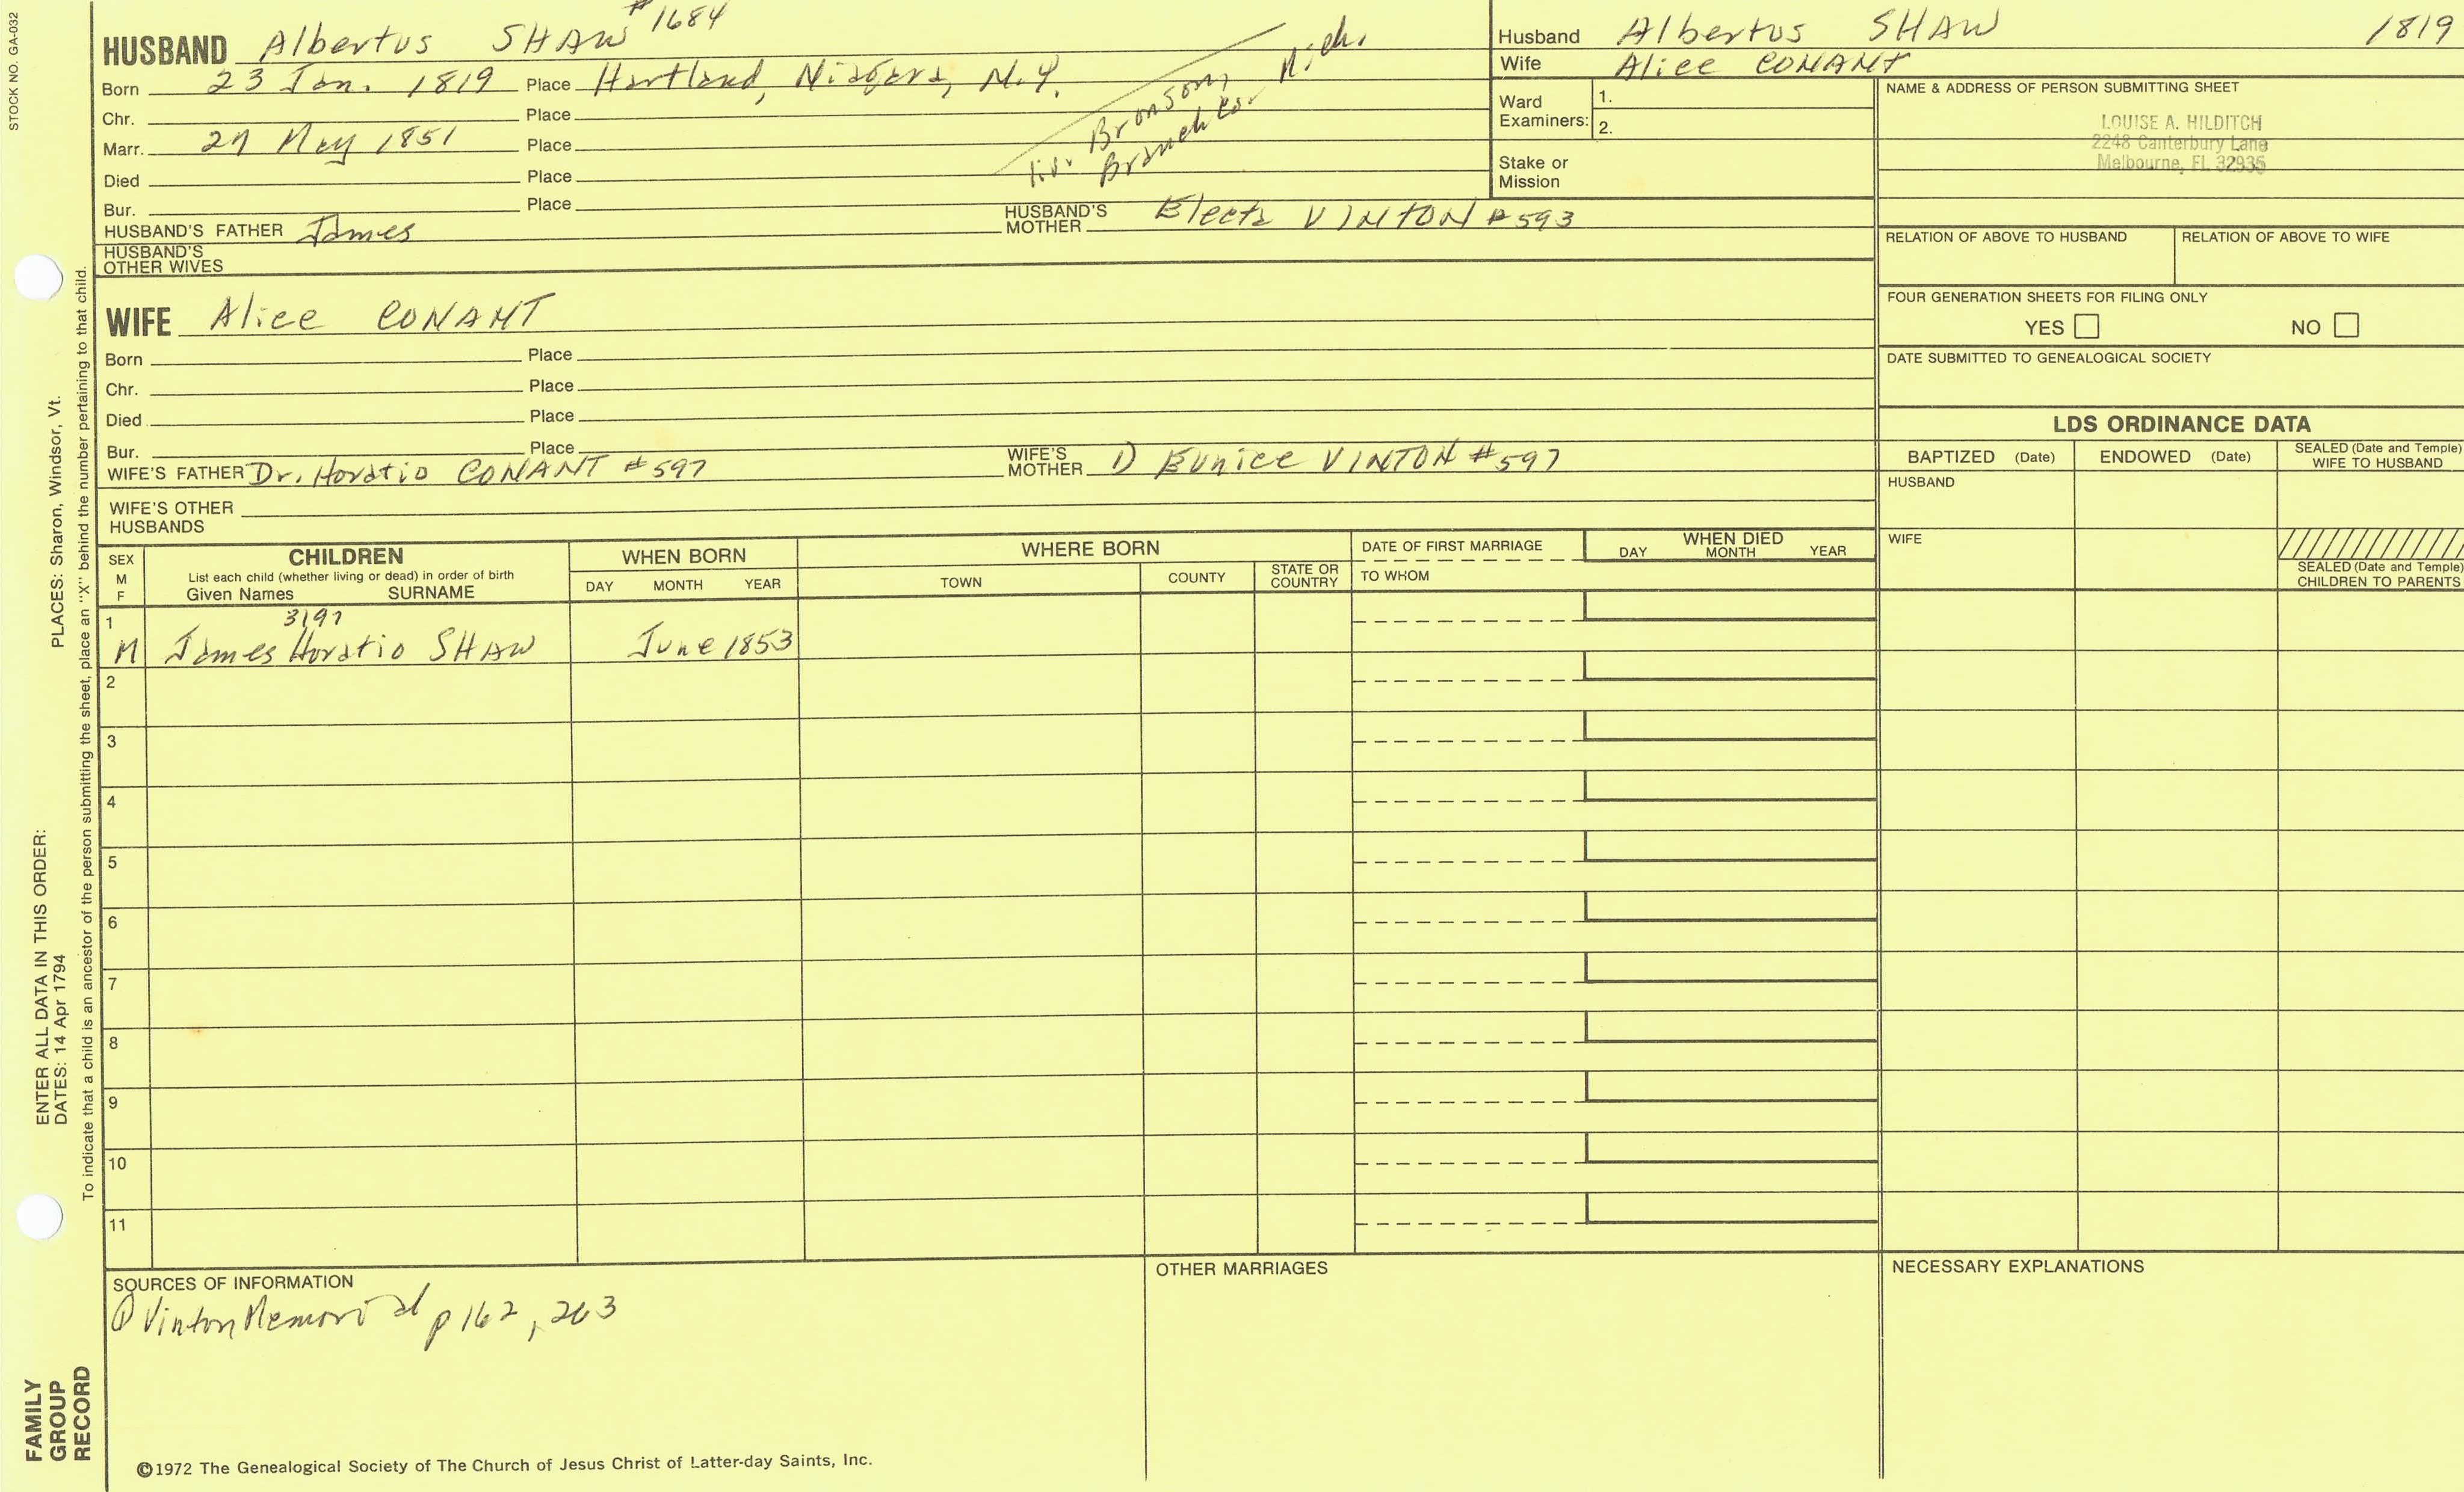 STOCK NO. GA-032
HUSBAND Albertus SHAW #1684
Born 23 Jan. 1819 Place Hartland, Niagara, N.Y.
Chr. Place
Marr. 27 May 1851 Place
Died Place
Bur. Place
liv. Bronson, Mich.
Branch Co.
HUSBAND'S FATHER James
HUSBAND'S MOTHER Electa VINTON #593
HUSBAND'S OTHER WIVES
WIFE Alice CONANT
Born Place
Chr. Place
Died Place
Bur. Place
WIFE'S FATHER Dr. Horatio CONANT #597
WIFE'S MOTHER 1) Eunice VINTON #597
WIFE'S OTHER HUSBANDS
Husband Albertus SHAW 1819
Wife Alice CONANT
Ward Examiners: 1.
2.
Stake or Mission
NAME & ADDRESS OF PERSON SUBMITTING SHEET
LOUISE A. HILDITCH
2248 Canterbury Lane
Melbourne, FL 32935
RELATION OF ABOVE TO HUSBAND RELATION OF ABOVE TO WIFE
FOUR GENERATION SHEETS FOR FILING ONLY
YES NO
DATE SUBMITTED TO GENEALOGICAL SOCIETY
LDS ORDINANCE DATA
BAPTIZED (Date) ENDOWED (Date) SEALED (Date and Temple) WIFE TO HUSBAND
HUSBAND
WIFE
SEALED (Date and Temple) CHILDREN TO PARENTS
SEX M F
CHILDREN
List each child (whether living or dead) in order of birth
Given Names SURNAME
WHEN BORN
DAY MONTH YEAR
WHERE BORN
TOWN COUNTY STATE OR COUNTRY
DATE OF FIRST MARRIAGE
TO WHOM
WHEN DIED
DAY MONTH YEAR
1 3197
M James Horatio SHAW June 1853
2
3
4
5
6
7
8
9
10
11
SOURCES OF INFORMATION
① Vinton Memorial p 162, 263
OTHER MARRIAGES
NECESSARY EXPLANATIONS
©1972 The Genealogical Society of The Church of Jesus Christ of Latter-day Saints, Inc.
FAMILY
GROUP
RECORD
ENTER ALL DATA IN THIS ORDER:
DATES: 14 Apr 1794
PLACES: Sharon, Windsor, Vt.
To indicate that a child is an ancestor of the person submitting the sheet, place an "X" behind the number pertaining to that child.